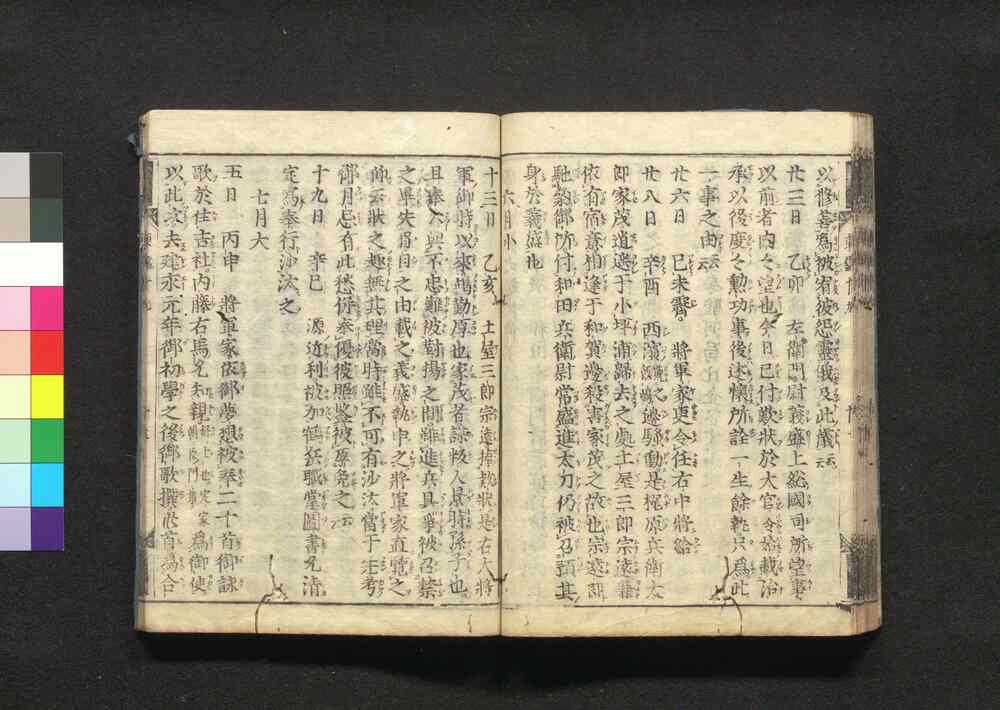 以修善爲被宥彼怨靈俄及此儀云云
廿三日　乙卯　左衛門尉義盛上総國司所望事
以前者内々望也今日已付款状於大官令始載治
承以後度々勲功事後述懐所詮一生餘執只爲此
一事之由云云
廿六日　己未霽　將軍家更令任右中將給
廿八日　辛酉　西濱邊騒動是梶原兵衛太
郎家茂逍遙于小坪浦歸去之處土屋三郎宗遠兼
依有宿意相逢于和賀邊殺害家茂之故也宗遠則
馳參御所付和田兵衛尉常盛進太刀仍被召預其
身於義盛也
六月小
十三日　乙亥　土屋三郎宗遠捧款状是右大將
軍御時以來勤厚也家茂者謀叛人景時孫子也
且奉公與不忠難被對揚之間雖進兵具爭被召禁
之畢失眉目之由載之義盛執申之將軍家直覽之
仰云状之趣無其理當時雖不可有沙汰當于主考
御月忌有此愁存泰優被照鑒被原免之云云
十九日　辛巳　源近利被加鶴岳職掌圖書允清
定爲奉行沙汰之
七月大
五日　丙申　將軍家依御夢想被奉二十首御詠
歌於住吉社内藤右馬允知親爲御使
以此次去建永元年御初學之後御歌撰卅首爲合